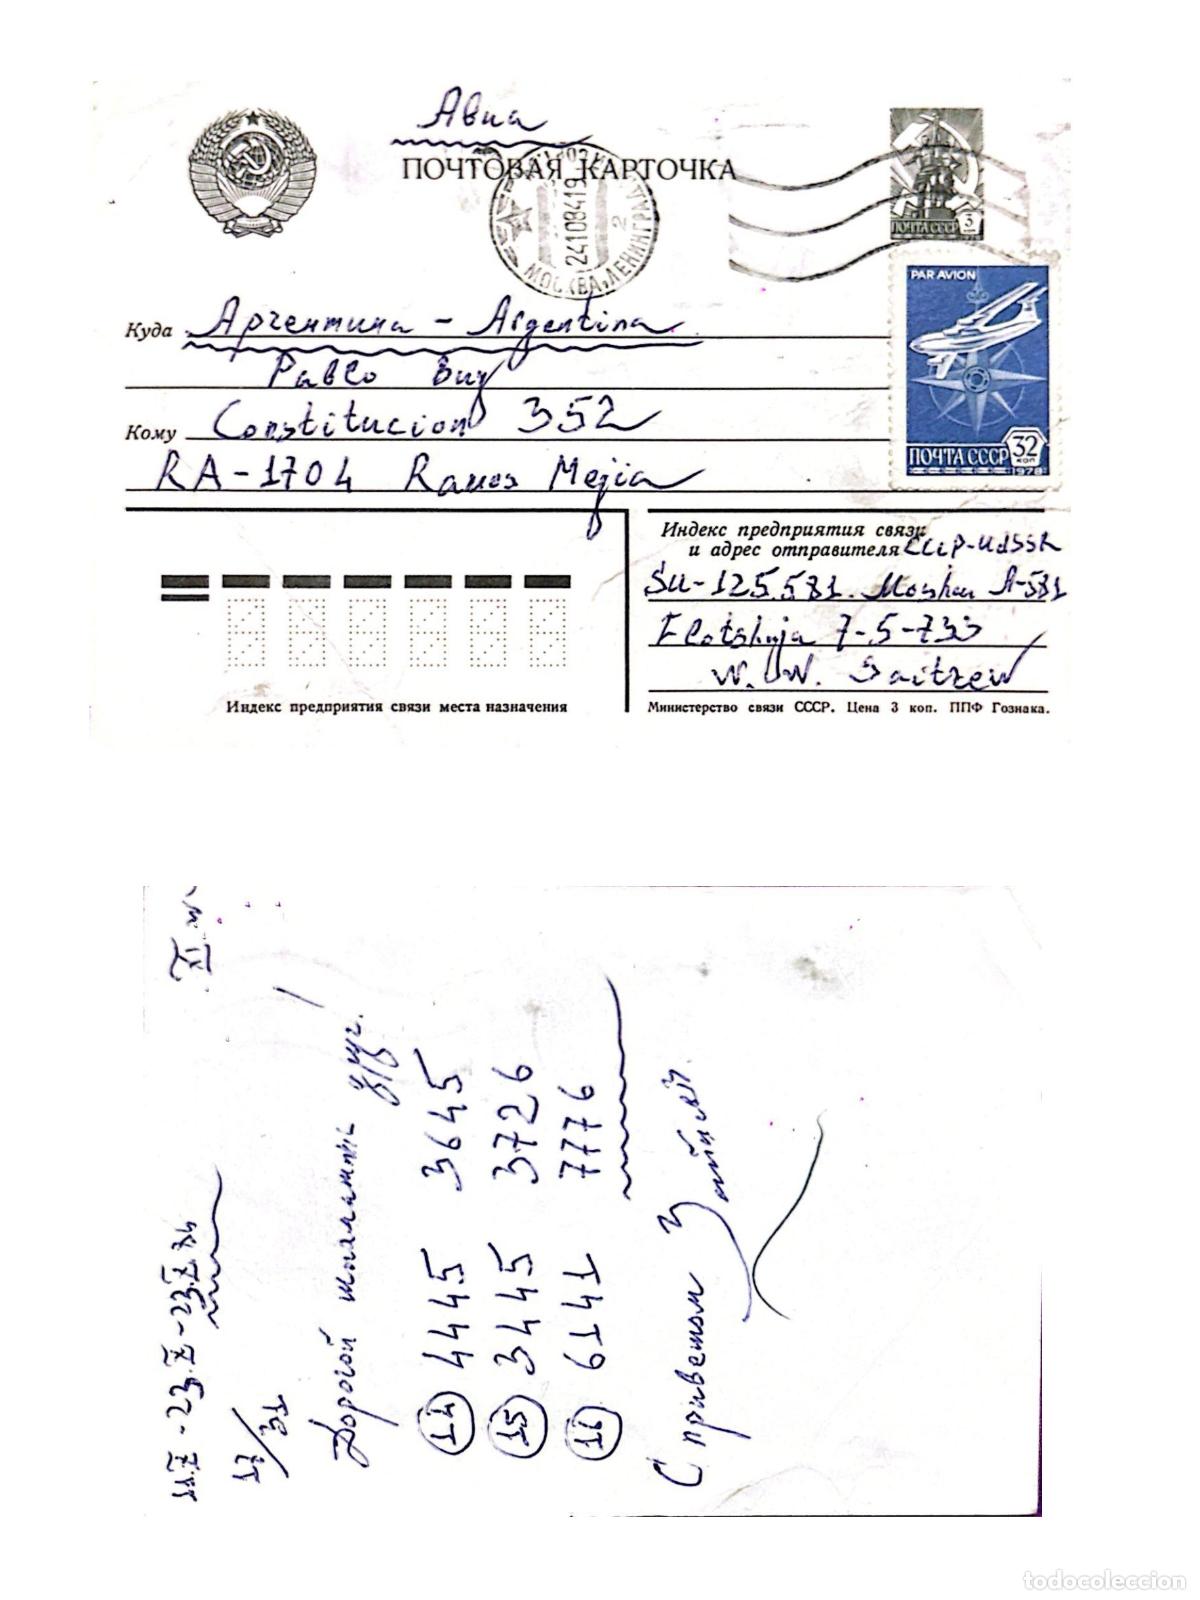 Авиа
ПОЧТОВАЯ КАРТОЧКА
МОСКВА, ЛЕНИНГРАД
2
24108419
ПОЧТА СССР 3
PAR AVION
ПОЧТА СССР 32 КОП
1978
Куда Аргентина - Argentina
Pablo Buy
Кому Constitucion 352
RA-1704 Ramos Mejia
Индекс предприятия связи
и адрес отправителя СССР-UdSSR
SU-125.581. Moskau A-581
Flotskaja 7-5-733
W. W. Saitzew
Индекс предприятия связи места назначения
Министерство связи СССР. Цена 3 коп. ППФ Гознака.
XI
Дорогой шахматн. друг. !
14 4445 3645
15 3445 3726
16 6141 7776
С приветом Зайцев
todocoleccion